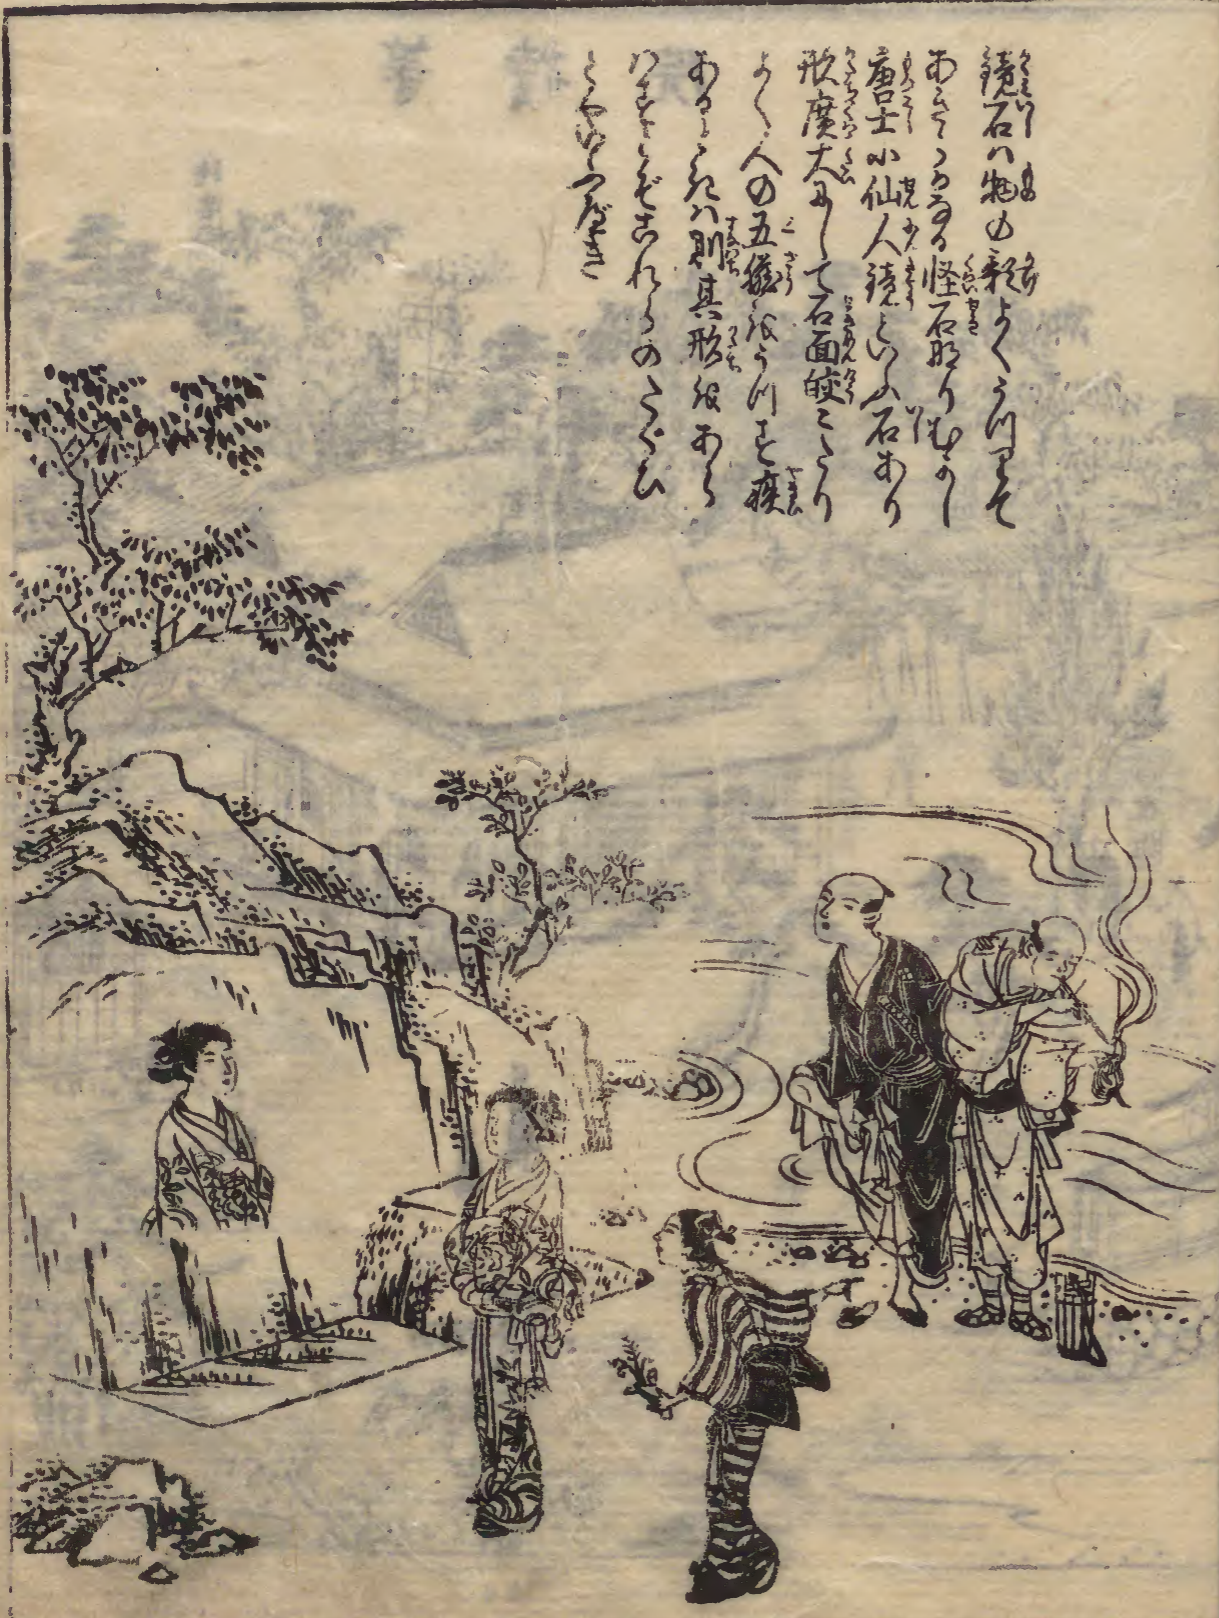 鏡石ハ物の影よくうつりて
あきらかなる怪石なりむかし
唐土に仙人鏡といふ石あり
形廣大にして石面皎々たり
よく人の五臓をうつす疾
あるときハ則其形をあら
ハすとぞこれらのたぐひ
とやいひつべき